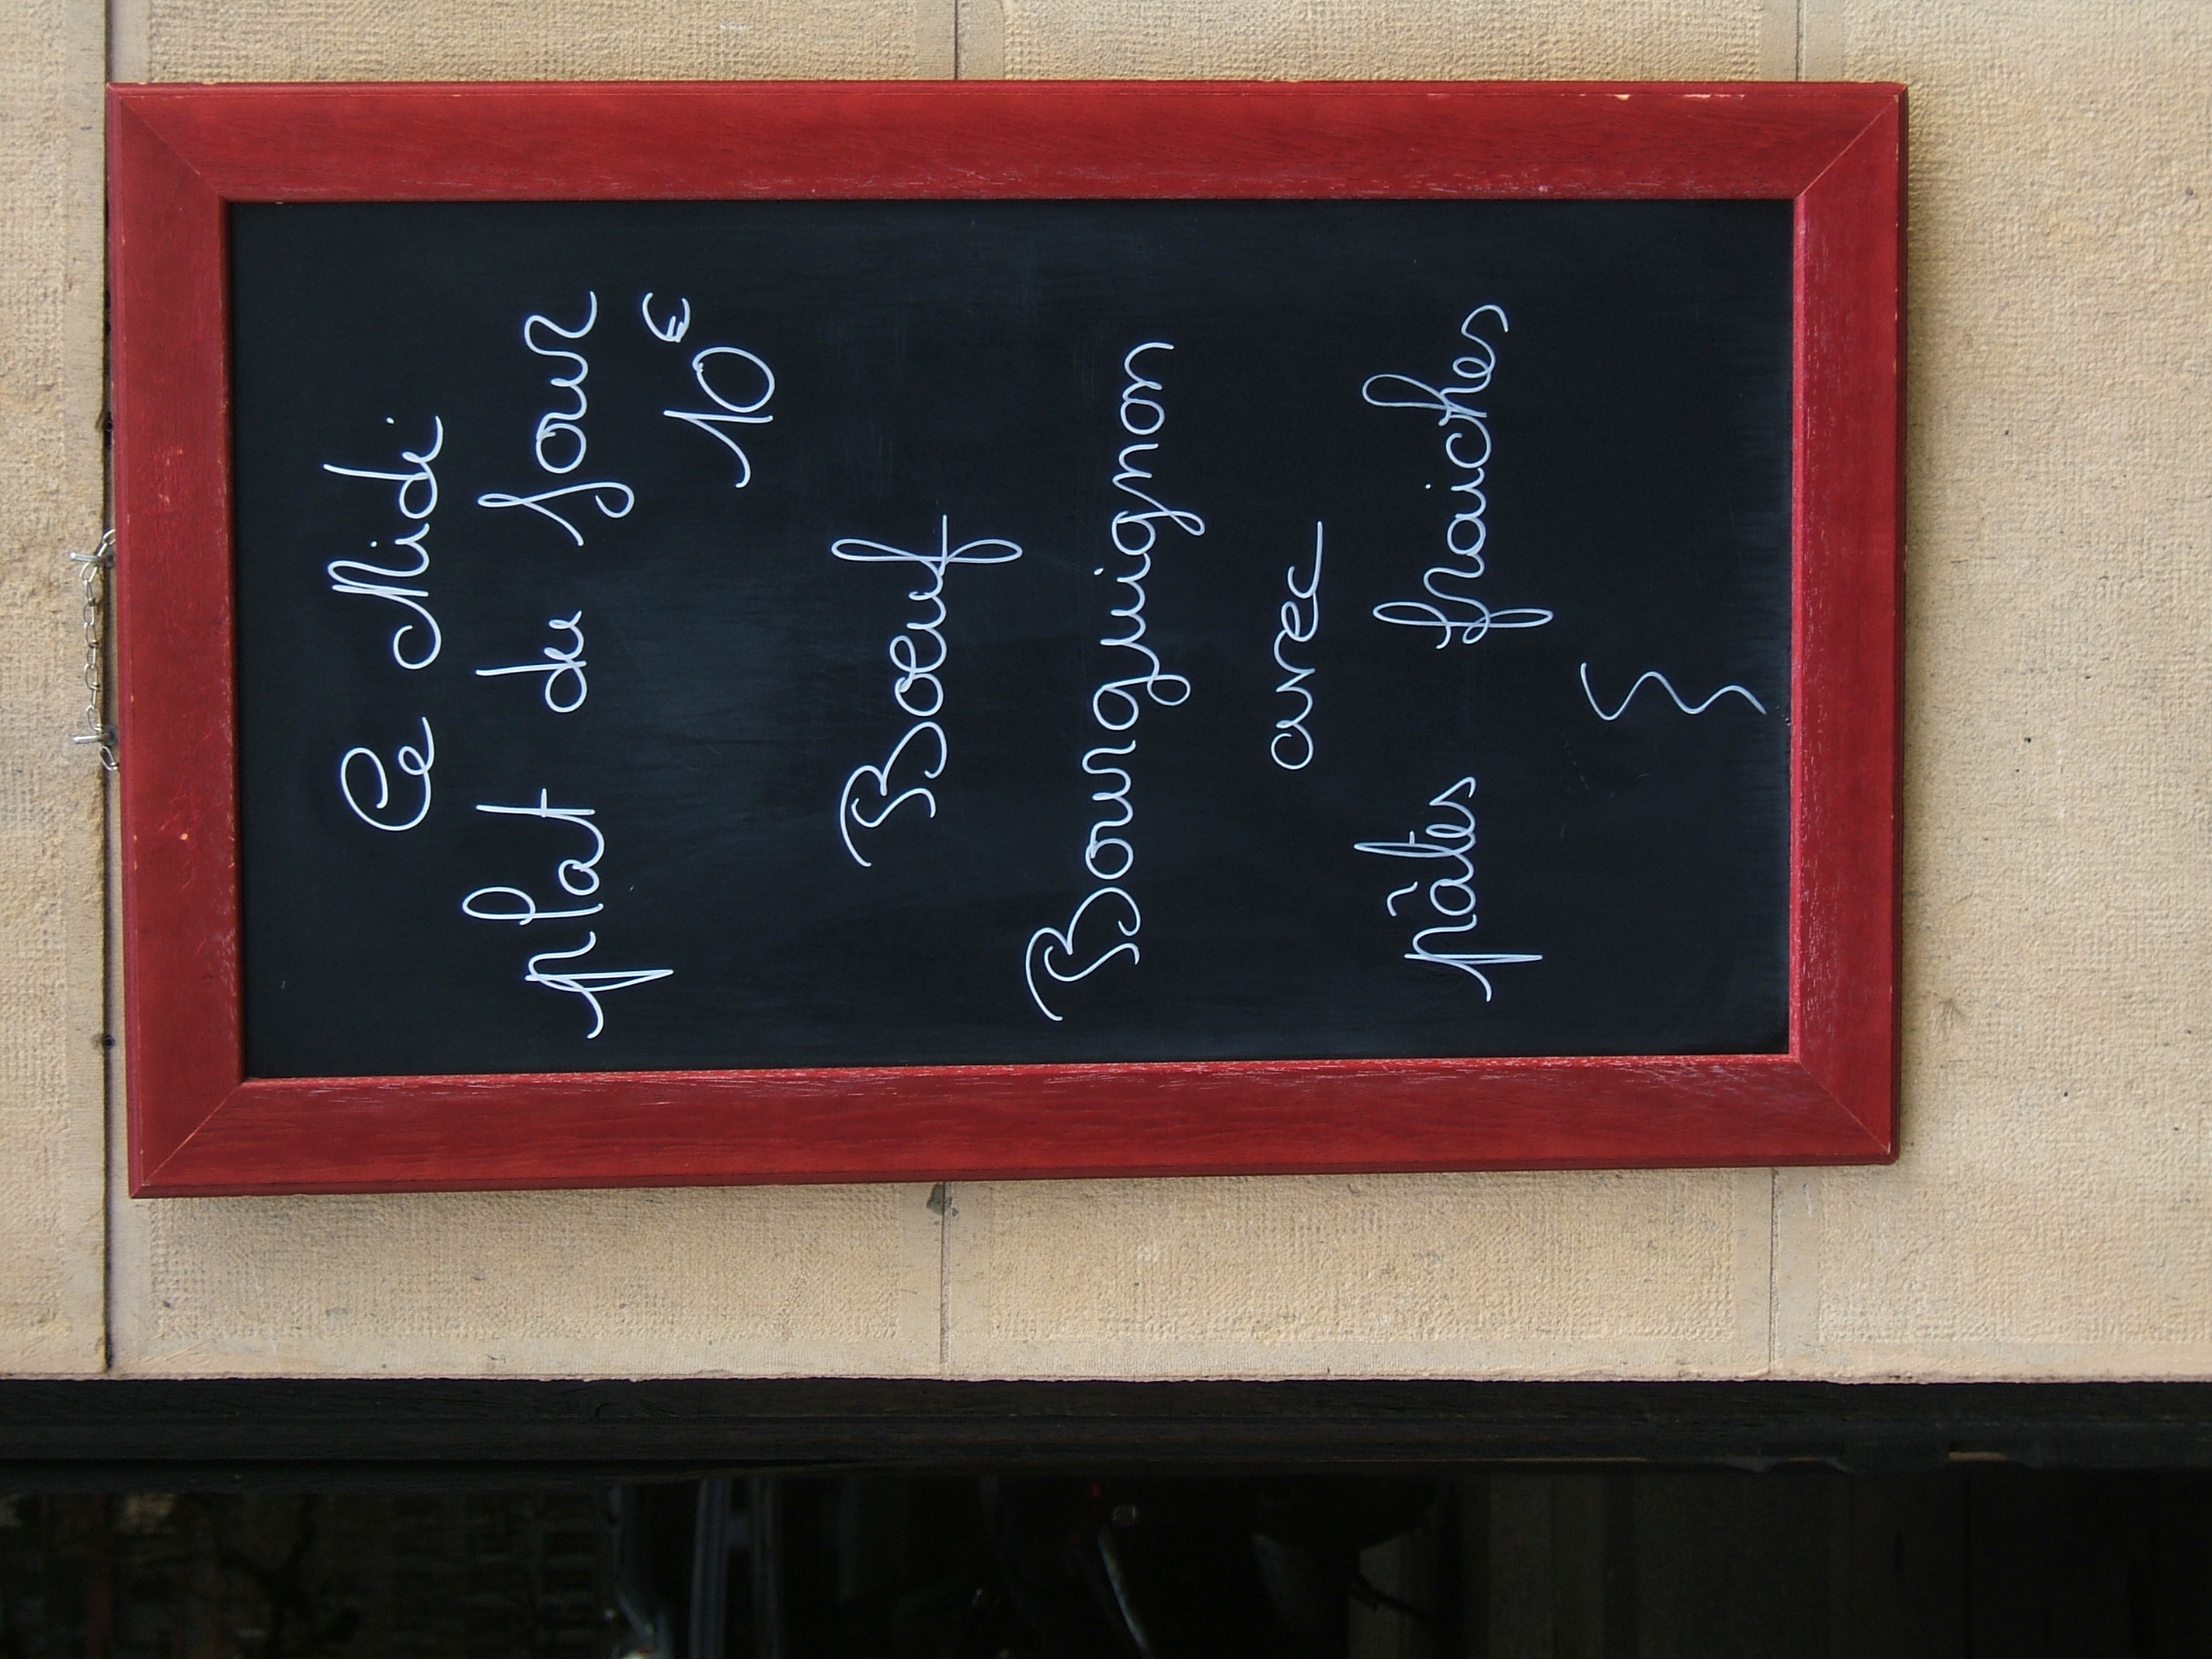 Ce Midi
plat du Jour
10€
Boeuf
Bourguignon
avec
pâtes fraiches